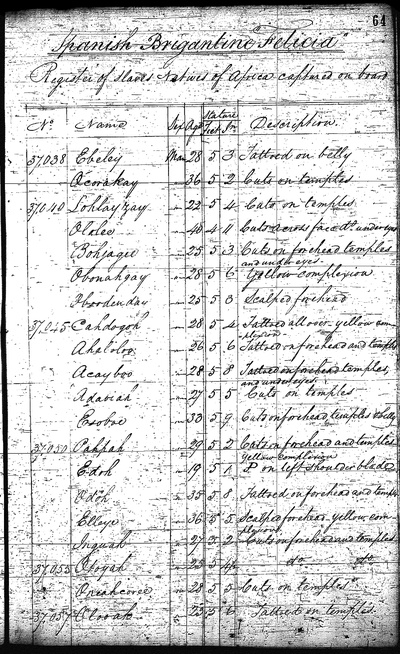 64
Spanish Brigantine "Felicia"
Register of Slaves Natives of Africa captured on board
No. Name Sex Age Stature Feet In. Description
37,038 Ebeley Man 28 5 3 Tattoed on belly
Ocorakay 36 5 2 Cuts on temples
37,040 22 5 4 Cuts on temples
Ololee 40 4 11 Cuts across face do. under eyes
Bohjagee 25 5 3 Cuts on forehead temples
and under eyes
Obonahgay 28 5 6 Yellow complexion
25 5 3 Scalped forehead
37,045 Cahdogoh 28 5 4 Tattoed all over yellow com-
plexion
Ahaloloo 26 5 6 Tattoed on forehead and temples
Acayboo 28 5 8 Tattoed on forehead temples,
and under eyes
Adaviah 27 5 5 Cuts on temples
Esoboe 33 5 9 Cuts on forehead, temples & belly
37,050 Pahpah 29 5 2 Cuts on forehead and temples
Yellow Complexion
Edoh 19 5 1 P on left shoulder blade
Odoh 35 5 8 Tattoed on forehead and temples
Elleye 36 5 5 Scalped forehead yellow com-
plexion
Inguah 27 5 2 Cuts on forehead and temples
37,055 Otoyah 25 5 do. do.
28 5 5 Cuts on temples
37,057 Olooah 23 5 6 Tattoed on temples.